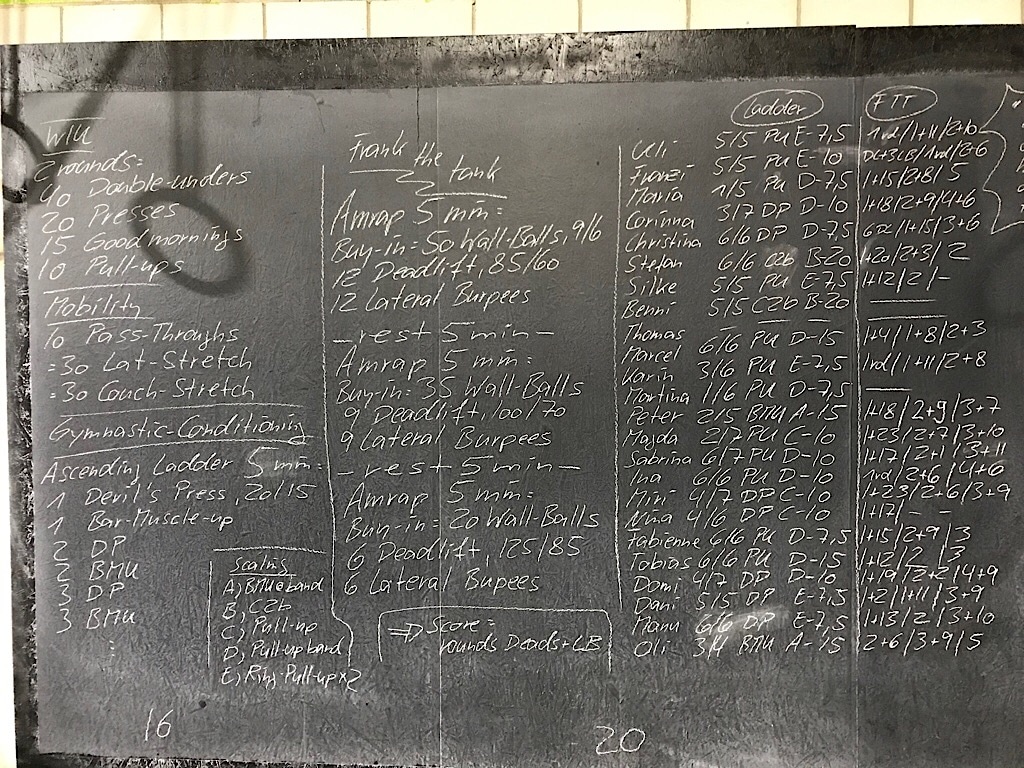 WIU
2 rounds:
40 Double-unders
20 Presses
15 Goodmornings
10 Pull-ups
Mobility
10 Pass-Throughs
:30 Lat-Stretch
:30 Couch-Stretch
Gymnastic-Conditioning
Ascending Ladder 5 min:
1 Devil's Press, 20/15
1 Bar-Muscle-up
2 DP
2 BMU
3 DP
3 BMU
Scaling
A) BMU band
B) C2b
C) Pull-up
D) Pull-up band
E) Ring-Pull-up x2
16
Frank the tank
Amrap 5 min:
Buy-in: 50 Wall-Balls, 9/6
12 Deadlift, 85/60
12 Lateral Burpees
- rest 5 min -
Amrap 5 min:
Buy-in: 35 Wall-Balls
9 Deadlift, 100/70
9 Lateral Burpees
- rest 5 min -
Amrap 5 min:
Buy-in: 20 Wall-Balls
6 Deadlift, 125/85
6 Lateral Bupees
=> Score:
rounds Deads + LB
20
Ladder FTT
Uli 5/5 PU E-7,5 1rd/1+11/2+10
Franzi 5/5 PU E-10
Maria 1/5 PU D-7,5 1+15/2+8/5
Corinna 3/7 DP D-10 1+18/2+9/4+6
Christina 6/6 DP D-7,5
Stefan 6/6 C2b B-20 1+20/2+3/2
Silke 5/5 PU E-7,5 1+12/2/-
Benni 5/5 C2b B-20
Thomas
Marcel 6/6 PU D-15 1+4/1+8/2+3
Karin 3/6 PU E-7,5 1rd/1+11/2+8
Martina 1/6 PU D-7,5
Peter 2/5 BMU A-15 1+18/2+9/3+7
Majda 2/7 PU C-10 1+23/2+7/3+10
Sabrina 6/7 PU D-10
Ina 6/6 PU D-10 1rd/2+6/4+6
Mimi 4/7 DP C-10 1+23/2+6/3+9
Nina 4/6 DP C-10 1+17/-/-
Fabienne 6/6 PU D-7,5 1+15/2+9/3
Tobias 6/6 PU D-15 1+12/2/3
Domi 4/7 DP D-10 1+19/2+2/4+9
Dani 5/5 DP E-7,5
Manu 6/6 DP E-7,5 1+13/2/3+10
Oli 3/4 BMU A-15 2+6/3+9/5